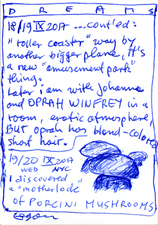 DREAMS
18/19 IX 2017 ...cont'ed:
"roller coaster" way by
another bigger plane, it's
a new "amusement park"
thing.
Later i am with Johanna
and OPRAH WINFREY in a
room, erotic atmosphere,
But oprah has blond-colored
short hair.
19/20 IX 2017
WED NYC
I discovered
a "motherlode"
OF PORCINI MUSHROOMS